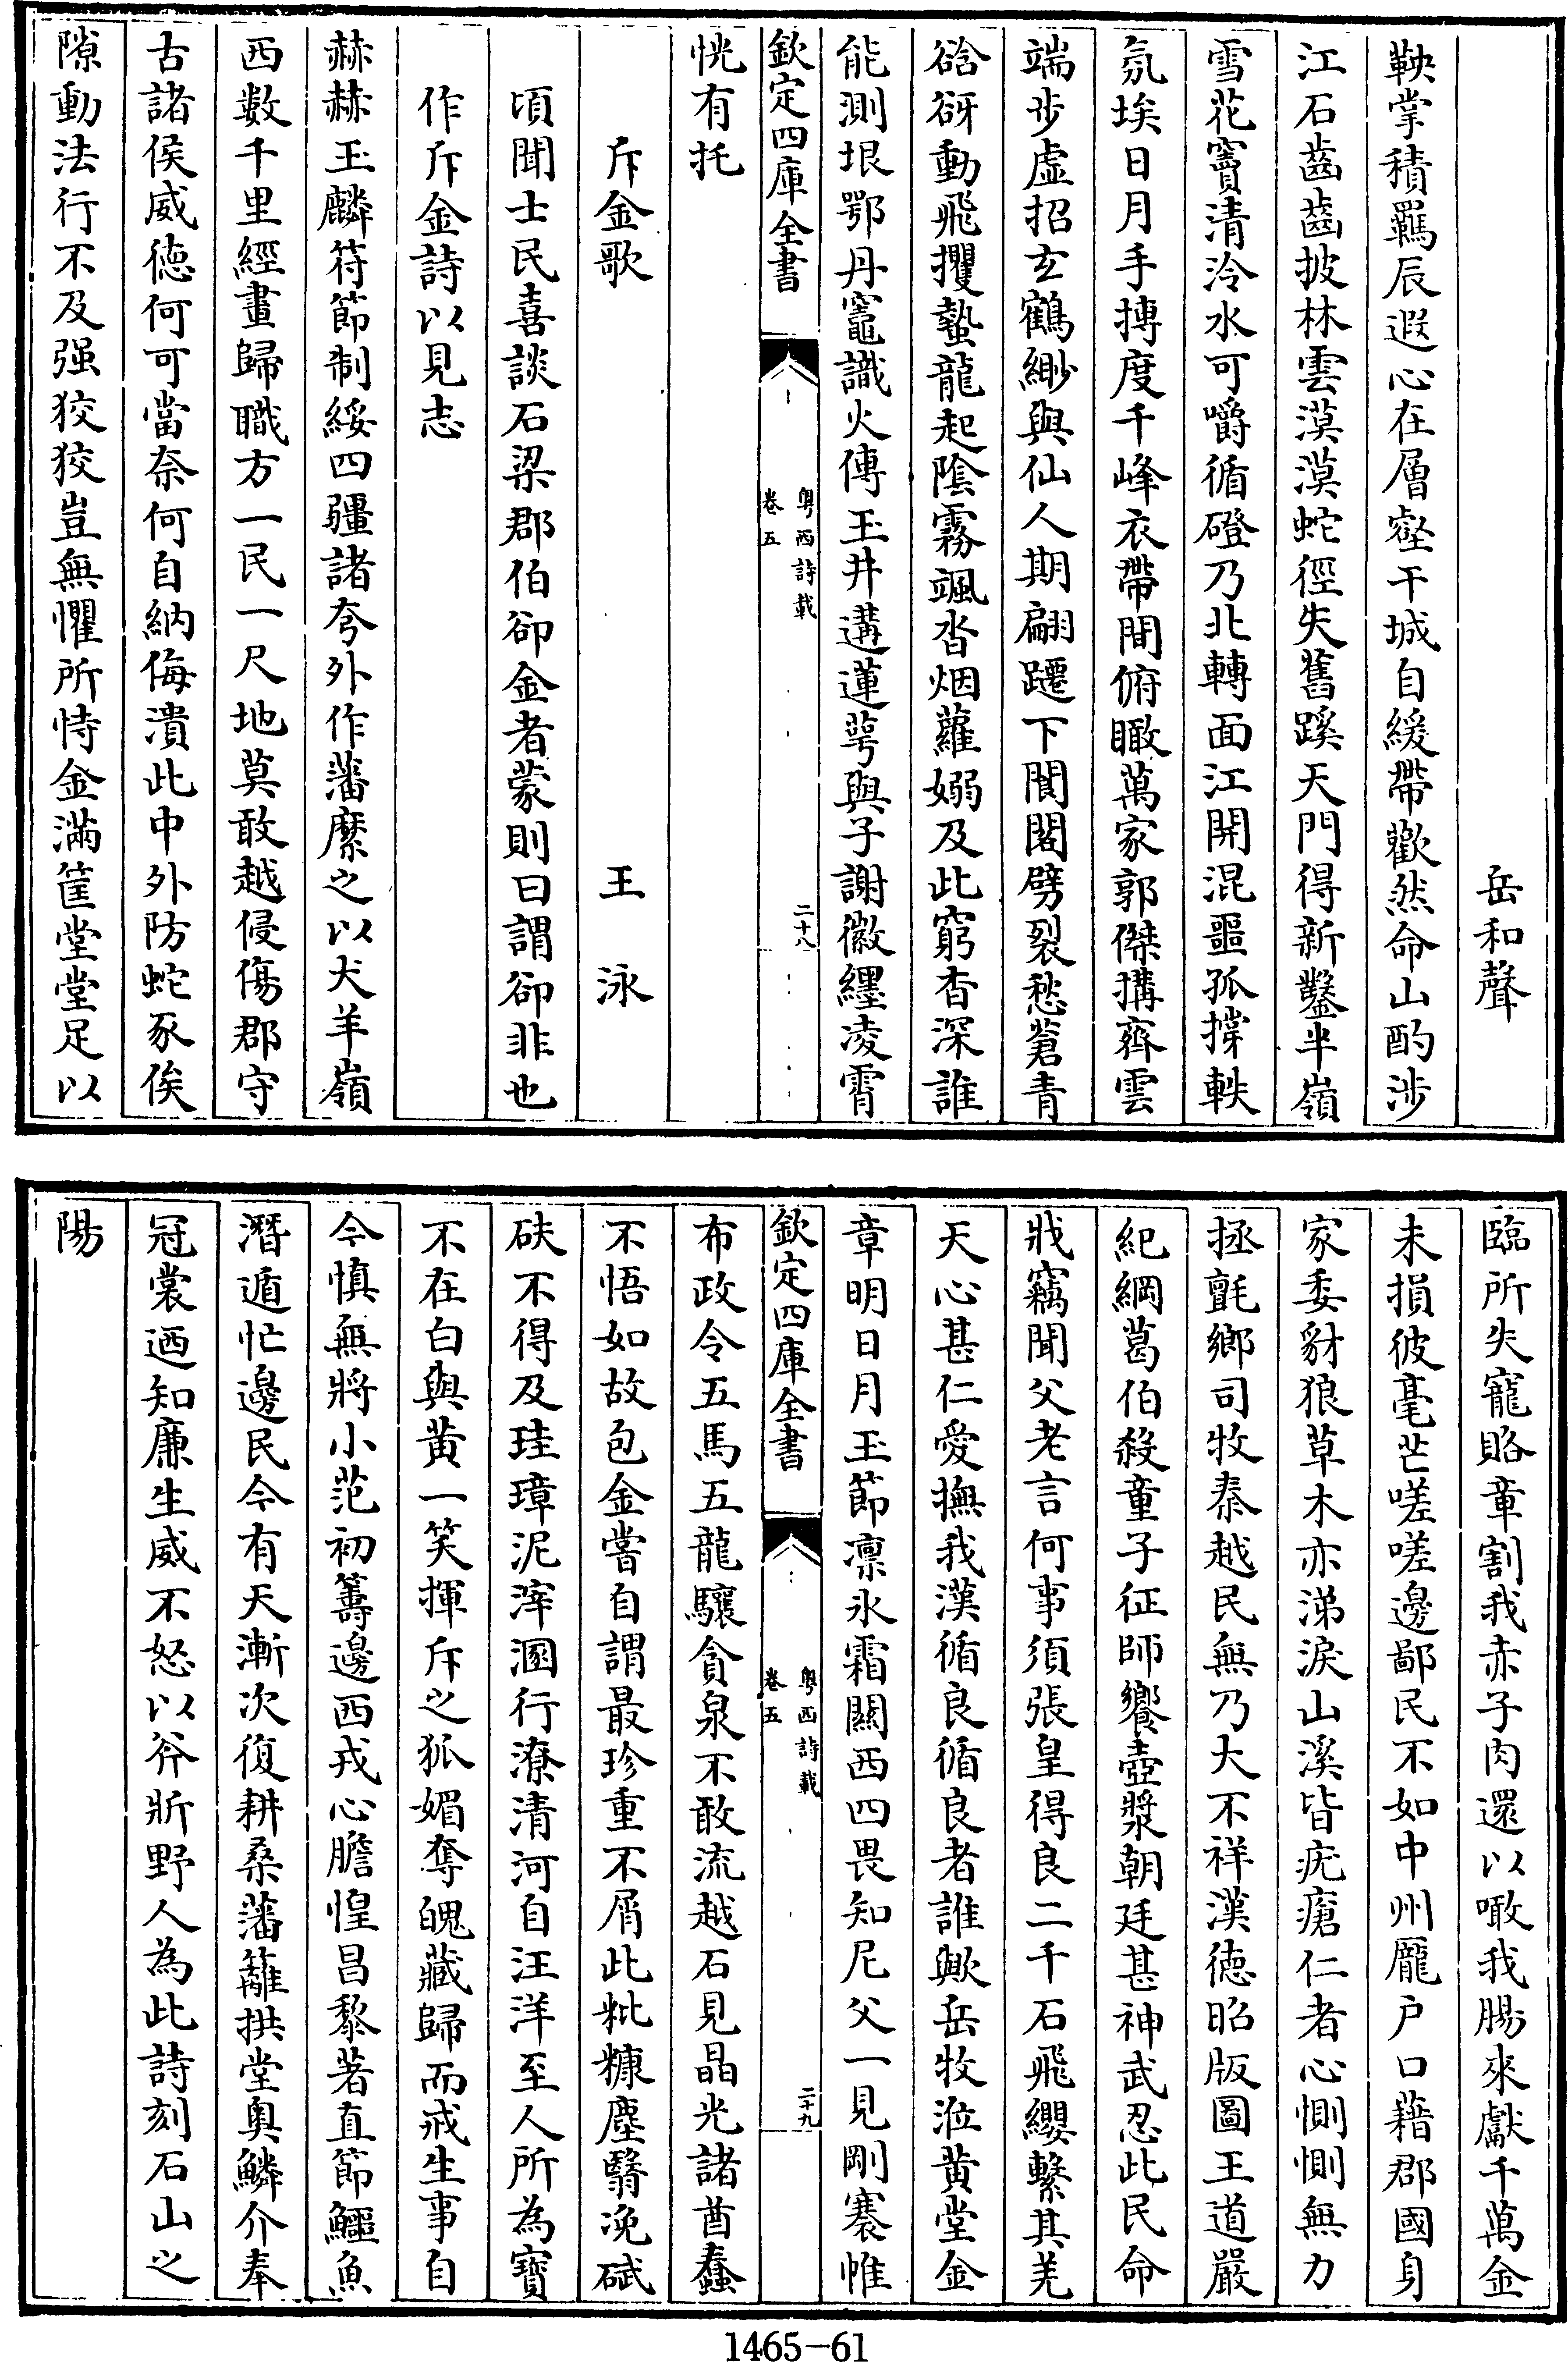 岳和聲
鞅掌積羈辰遐心在層壑干城自緩帶歡然命山酌涉
江石齒齒披林雲漠漠蛇徑失舊蹊天門得新鑿半嶺
雪花竇清泠水可嚼循磴乃北轉面江開混噩孤撐軼
氛埃日月手摶度千峰衣帶間俯瞰萬家郭傑搆齊雲
端步虛招玄鶴緲與仙人期翩躚下閬閣劈裂愁蒼青
谽谺動飛攫蟄龍起陰霧颯沓烟蘿嫋及此窮杳深誰
能測垠鄂丹竈識火傳玉井遘蓮萼與子謝徽纆凌霄
欽定四庫全書
粤西詩載
卷五
二十八
恍有托
斥金歌
王泳
頃聞士民喜談石梁郡伯卻金者蒙則曰謂卻非也
作斥金詩以見志
赫赫玉麟符節制綏四疆諸夸外作藩縻之以犬羊嶺
西數千里經畫歸職方一民一尺地莫敢越侵傷郡守
古諸侯威徳何可當奈何自納侮潰此中外防蛇豕俟
隙動法行不及强狡狡豈無懼所恃金滿筐堂堂足以
臨所失寵賂章割我赤子肉還以噉我腸來獻千萬金
未損彼毫芒嗟嗟邊鄙民不如中州厖户口藉郡國身
家委豺狼草木亦涕淚山溪皆疣瘡仁者心惻惻無力
拯氈鄉司牧泰越民無乃大不祥漢徳昭版圖王道嚴
紀綱葛伯殺童子征師饗壺漿朝廷甚神武忍此民命
戕竊聞父老言何事須張皇得良二千石飛纓繫其羌
天心甚仁愛撫我漢循良循良者誰歟岳牧涖黄堂金
章明日月玉節凛氷霜關西四畏知尼父一見剛褰帷
欽定四庫全書
粤西詩載
卷五
二十九
布政令五馬五龍驤貪泉不敢流越石見晶光諸酋蠢
不悟如故包金嘗自謂最珍重不屑此粃糠塵翳浼碔
砆不得及珪璋泥滓溷行潦清河自汪洋至人所為寶
不在白與黄一笑揮斥之狐媚奪魄藏歸而戒生事自
今慎無將小范初籌邊西戎心膽惶昌黎著直節鱷魚
潛遁忙邊民今有天漸次復耕桑藩籬拱堂奥鱗介奉
冠裳迺知廉生威不怒以斧斨野人為此詩刻石山之
陽
1465-61